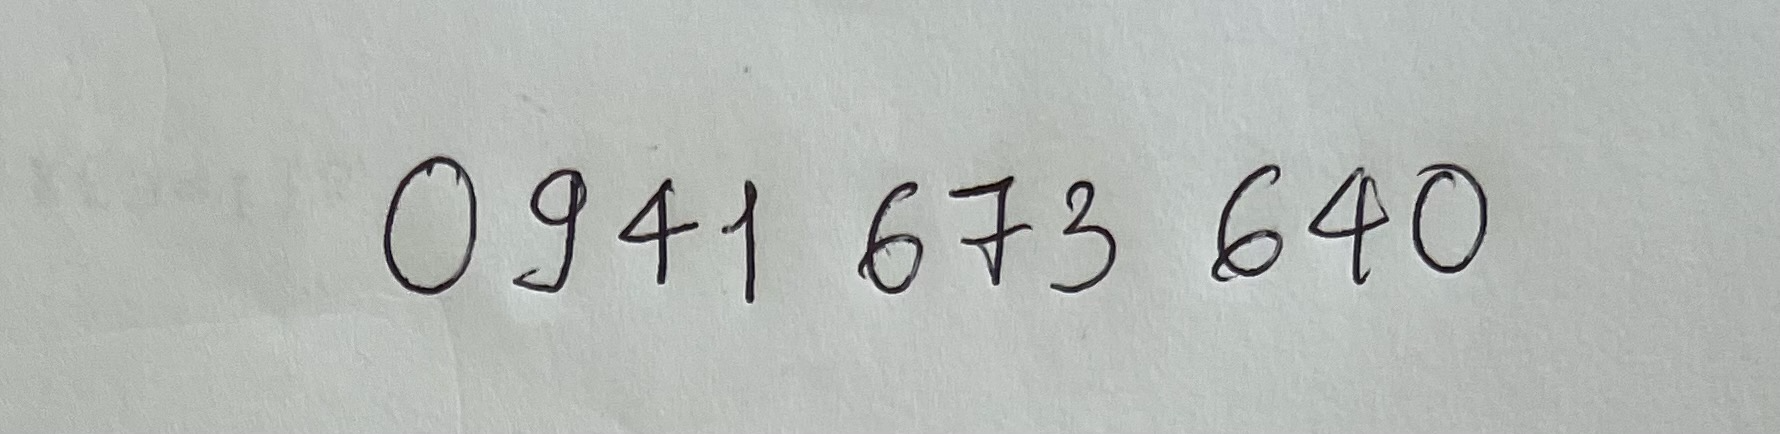 0941 673 640